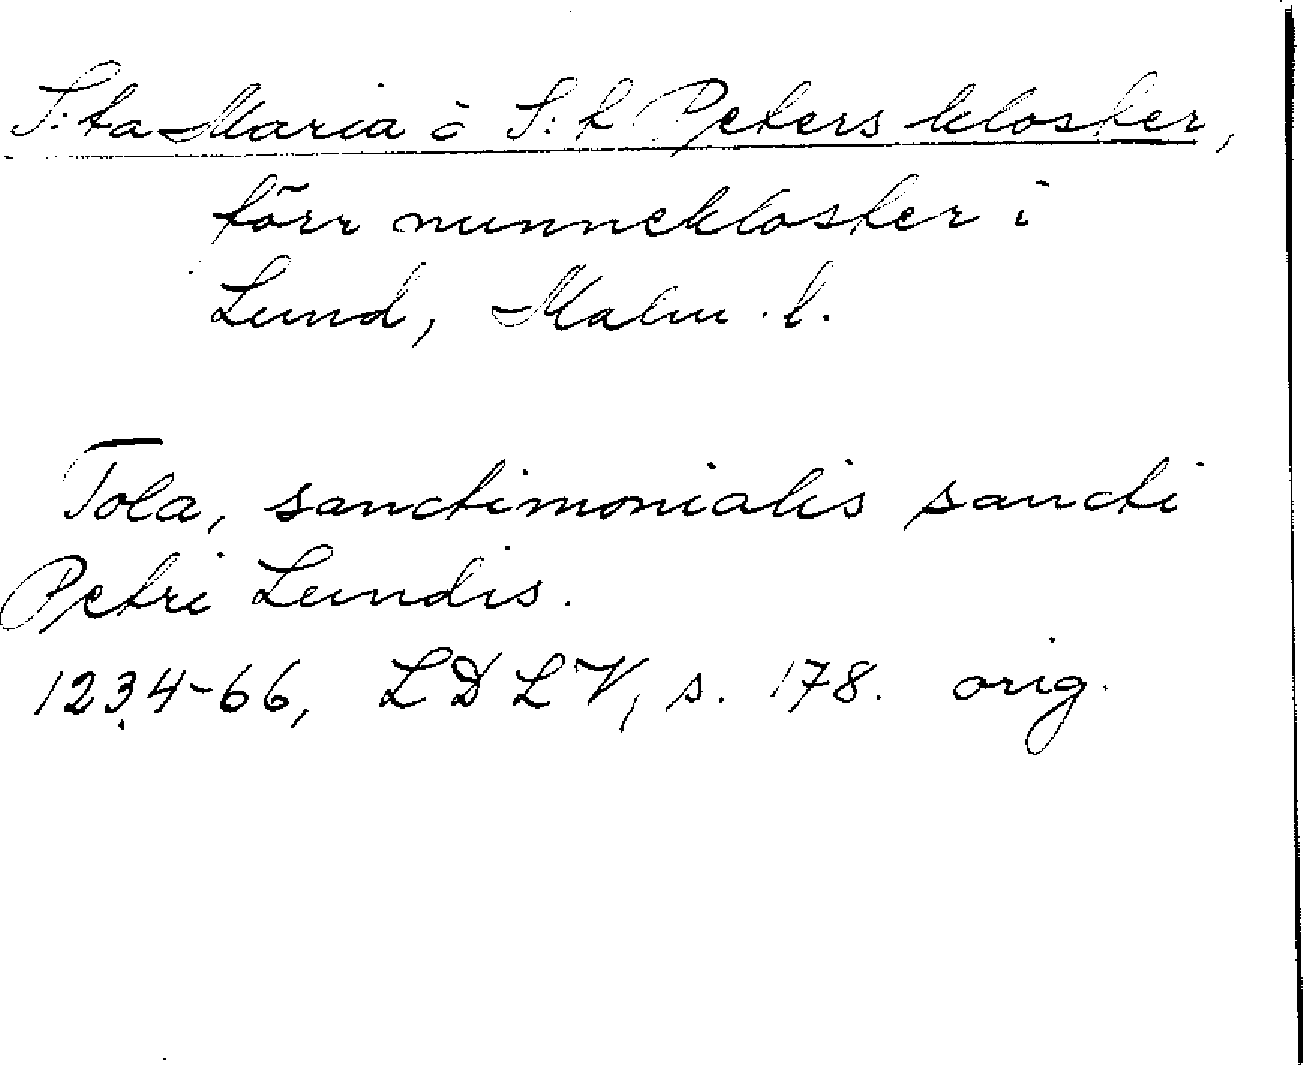 S:ta Maria o S:t Peters kloster,
förr nunnekloster i
Lund, Malm. l.
Tola, sanctimonialis sancti
Petri Lundis.
1234-66, LDLV, s. 178. orig.